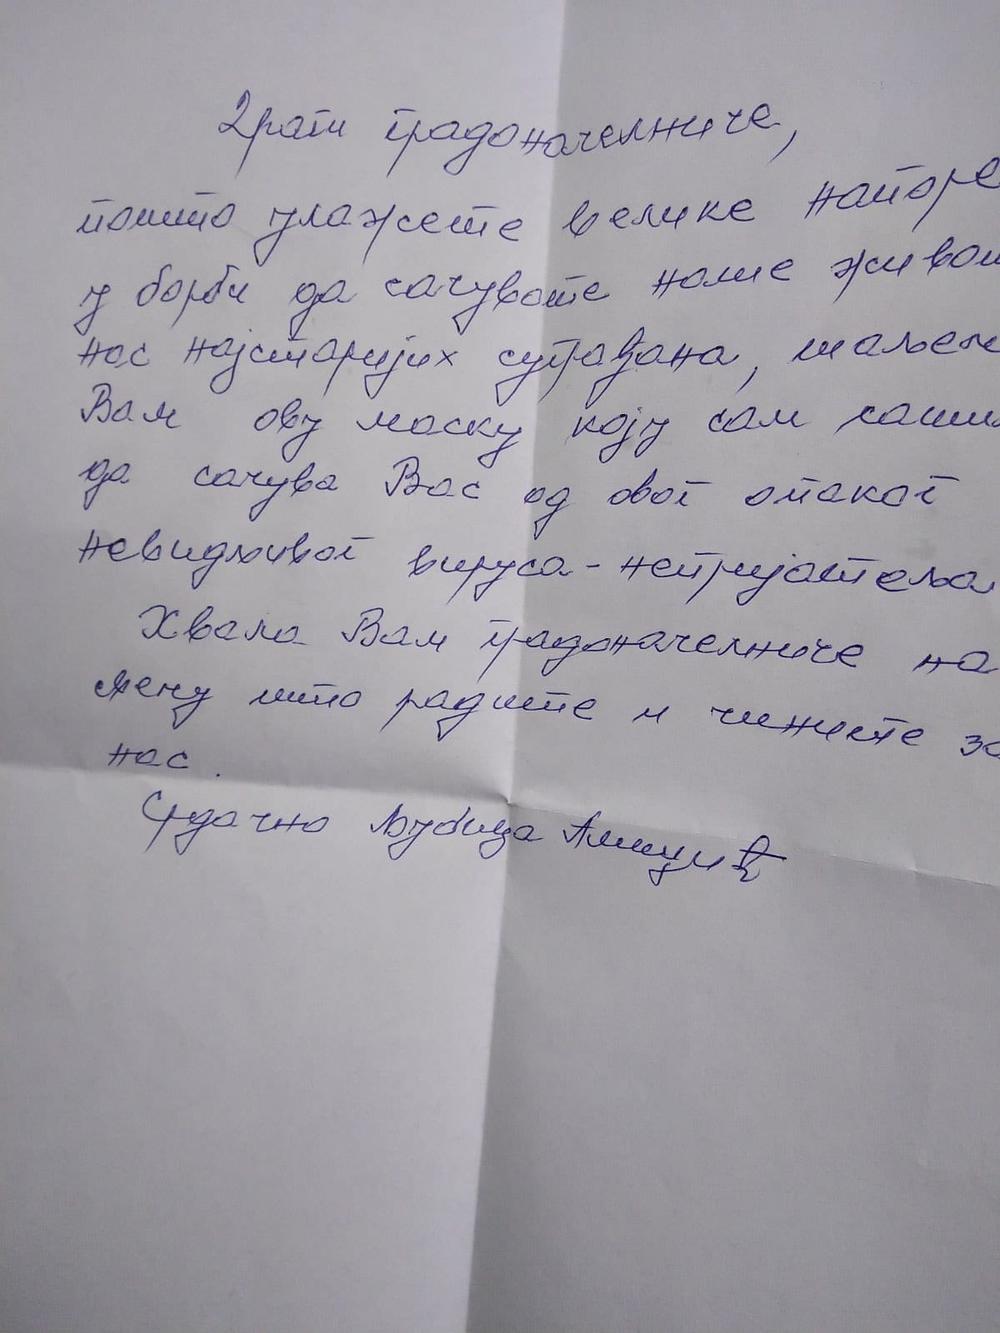 Драги градоначелниче,
пошто улажете велике напоре
у борби да сачувате наше живот
нас најстаријих суграђана, шаљем
Вам ову маску коју сам сашила
да сачува Вас од овог опаког
невидљивог вируса - непријатеља
Хвала Вам градоначелниче на
свему што радите и чините за
нас.
Срдачно Љубица